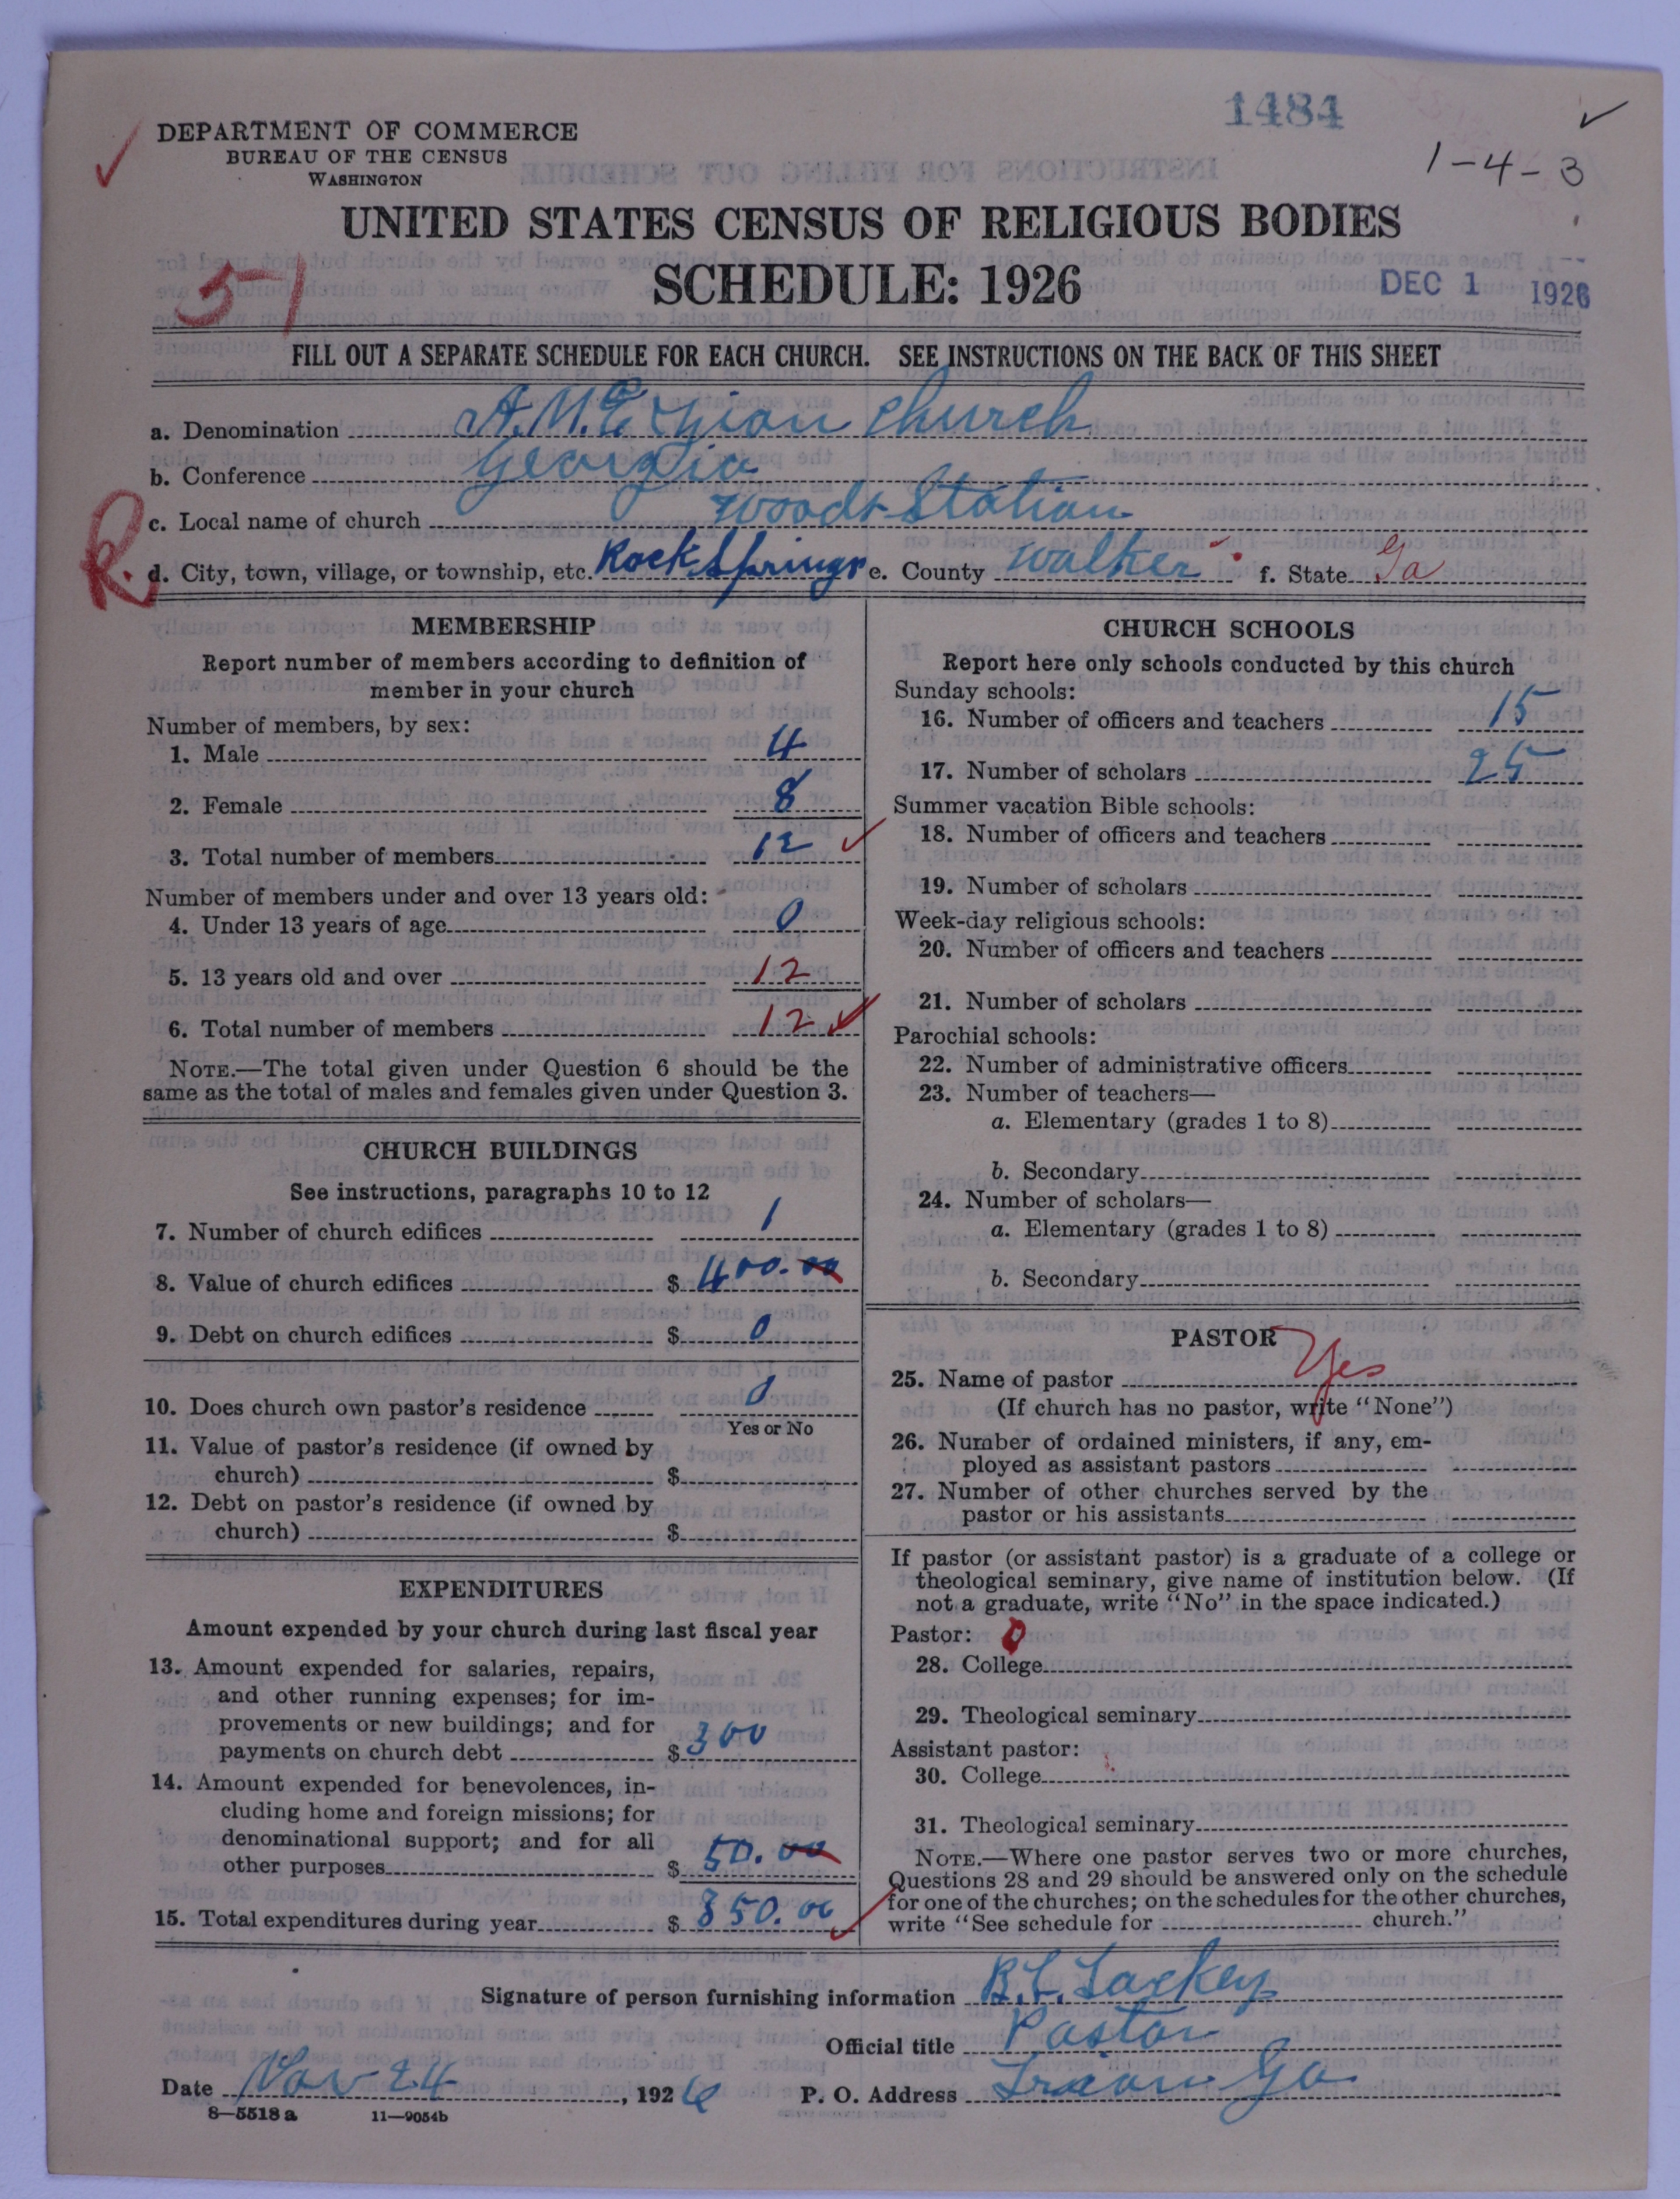 1484
1-4-3
DEPARTMENT OF COMMERCE
BUREAU OF THE CENSUS
WASHINGTON
UNITED STATES CENSUS OF RELIGIOUS BODIES
SCHEDULE: 1926
51
DEC 1 1926
FILL OUT A SEPARATE SCHEDULE FOR EACH CHURCH. SEE INSTRUCTIONS ON THE BACK OF THIS SHEET
a. Denomination A.M.E. Zion Church
b. Conference Georgia
c. Local name of church Woods Station
R. d. City, town, village, or township, etc. Rock Springs e. County Walker f. State Ga
MEMBERSHIP
Report number of members according to definition of
member in your church
Number of members, by sex:
1. Male 4
2. Female 8
3. Total number of members 12
Number of members under and over 13 years old:
4. Under 13 years of age 0
5. 13 years old and over 12
6. Total number of members 12
NOTE.—The total given under Question 6 should be the
same as the total of males and females given under Question 3.
CHURCH BUILDINGS
See instructions, paragraphs 10 to 12
7. Number of church edifices 1
8. Value of church edifices $ 400.00
9. Debt on church edifices $ 0
10. Does church own pastor's residence 0
Yes or No
11. Value of pastor's residence (if owned by
church) $
12. Debt on pastor's residence (if owned by
church) $
EXPENDITURES
Amount expended by your church during last fiscal year
13. Amount expended for salaries, repairs,
and other running expenses; for im-
provements or new buildings; and for
payments on church debt $ 300
14. Amount expended for benevolences, in-
cluding home and foreign missions; for
denominational support; and for all
other purposes $ 50.00
15. Total expenditures during year $ 350.00
CHURCH SCHOOLS
Report here only schools conducted by this church
Sunday schools:
16. Number of officers and teachers 15
17. Number of scholars 25
Summer vacation Bible schools:
18. Number of officers and teachers
19. Number of scholars
Week-day religious schools:
20. Number of officers and teachers
21. Number of scholars
Parochial schools:
22. Number of administrative officers
23. Number of teachers—
a. Elementary (grades 1 to 8)
b. Secondary
24. Number of scholars—
a. Elementary (grades 1 to 8)
b. Secondary
PASTOR
25. Name of pastor Yes
(If church has no pastor, write "None")
26. Number of ordained ministers, if any, em-
ployed as assistant pastors
27. Number of other churches served by the
pastor or his assistants
If pastor (or assistant pastor) is a graduate of a college or
theological seminary, give name of institution below. (If
not a graduate, write "No" in the space indicated.)
Pastor: 0
28. College
29. Theological seminary
Assistant pastor:
30. College
31. Theological seminary
NOTE.—Where one pastor serves two or more churches,
Questions 28 and 29 should be answered only on the schedule
for one of the churches; on the schedules for the other churches,
write "See schedule for church."
Signature of person furnishing information Lackey
Official title Pastor
Date Nov 24, 1926 P. O. Address Trion Ga
8—5518 a 11—9054b